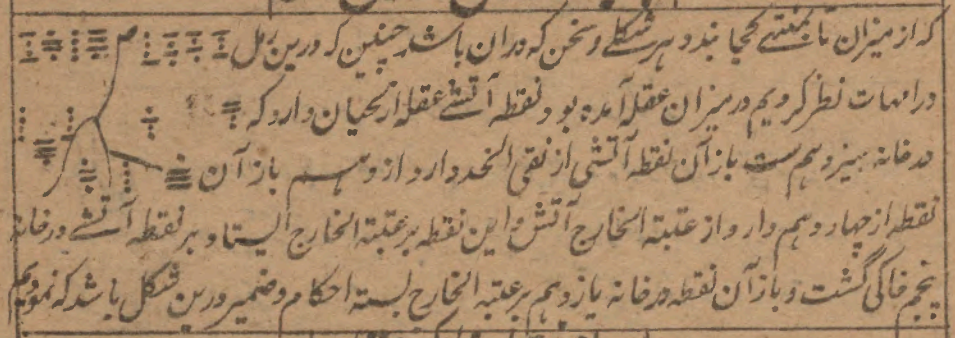 که از میزان تا بمنتهی کجا بندد هر شکلے و سخن که دران باشد چنین که درین رمل
در امهات نظر کردیم در میزان عقله آمده بود نقطه آتشے عقله از لحیان دارد که
در خانه سیزدهم ست باز آن نقطه آتشی از نقی الخد دارد از دهم باز آن
نقطه از چهاردهم دارد از عتبة الخارج آتش و این نقطه بر عتبة الخارج ایستاد بر نقطه آتشے در خانه
پنجم خاکی گشت و باز آن نقطه در خانه یازدهم بر عتبه الخارج بسته احکام و ضمیر درین شکل باشد که نمودیم